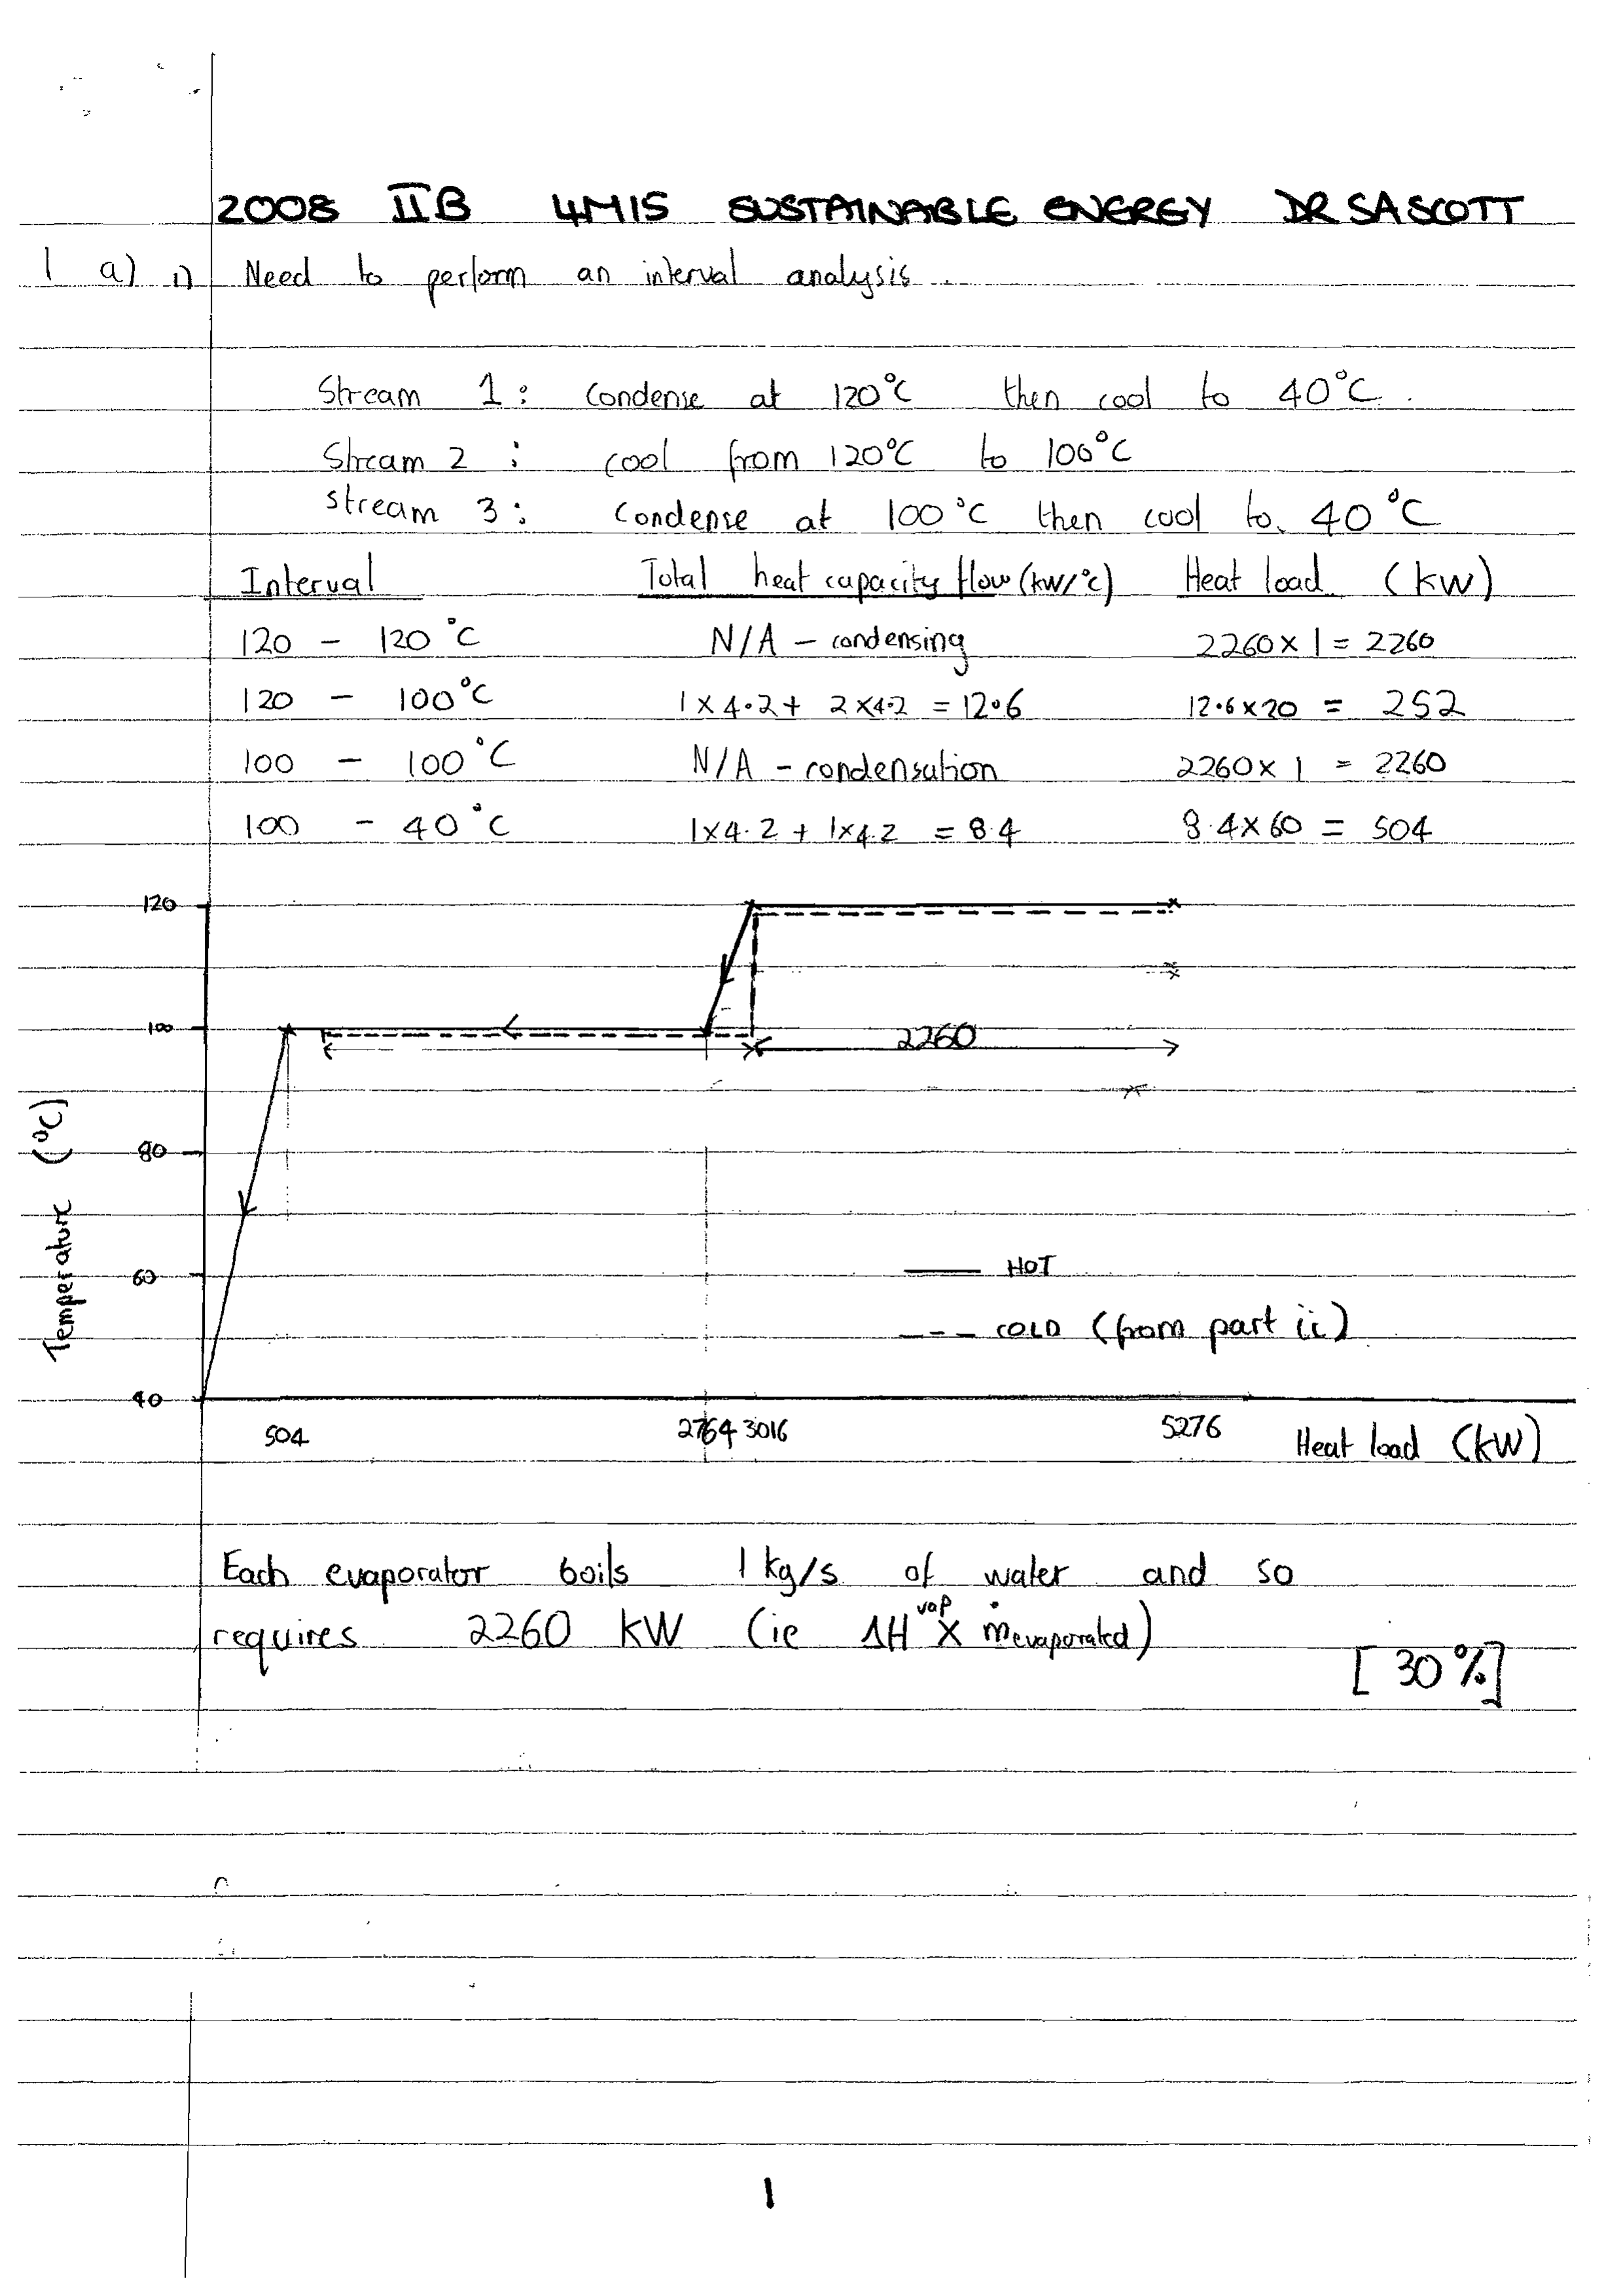 2008 IIB 4M15 SUSTAINABLE ENERGY DR SA SCOTT
1 a) i) Need to perform an interval analysis.
Stream 1: Condense at 120°C then cool to 40°C.
Stream 2: cool from 120°C to 100°C
Stream 3: Condense at 100°C then cool to 40°C
Interval Total heat capacity flow (kW/°C) Heat load (kW)
120 - 120°C N/A - condensing 2260 × 1 = 2260
120 - 100°C 1 × 4.2 + 2 × 4.2 = 12.6 12.6 × 20 = 252
100 - 100°C N/A - condensation 2260 × 1 = 2260
100 - 40°C 1 × 4.2 + 1 × 4.2 = 8.4 8.4 × 60 = 504
120
100
2260
Temperature (°C)
80
60
HOT
COLD (from part ii)
40
504 2764 3016 5276 Heat load (kW)
Each evaporator boils 1 kg/s of water and so
requires 2260 kW (ie ΔH^vap × ṁevaporated)
[30%]
1